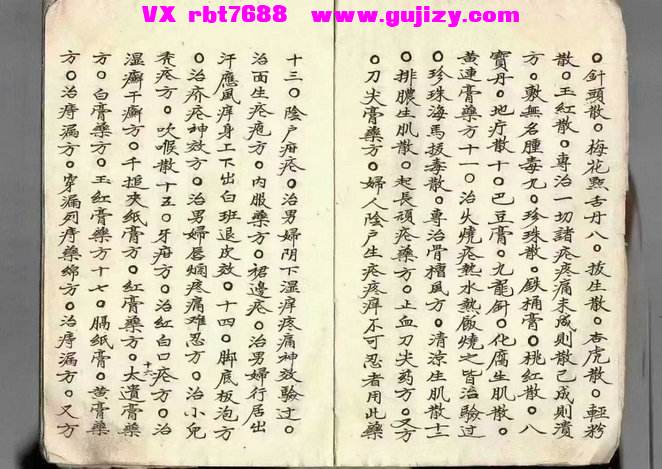 VX rbt7688 www.gujizy.com
○針頭散○梅花點舌丹八○拔生散○杏虎散○輕粉
散○玉紅散○專治一切諸疮疼痛未成則散已成則潰
方○敷無名腫毒九○珍珠散○鉄桶膏○桃紅散○八
寶丹○地疔散十○巴豆膏○九龍針○化腐生肌散○
黃連膏藥方十一○治火燒疮熱水熱飯燒之皆治驗过
○珍珠海馬拔毒散○專治骨槽風方○清涼生肌散十二
○排膿生肌散○起長頑疮藥方○止血刀尖药方○又方
○刀尖膏藥方○婦人陰户生疮疼痒不可忍者用此藥
十三○陰户疳疮○治男婦阴下湿痒疼痛神效驗过○
治面生疮疱方○内服藥方○裙邊疮○治男婦行居出
汗應風痒身工下出白班退皮效○十四○脚底板泡方
○治疥疮神效方○治男婦唇爛疼痛难忍方○治小兒
秃疮方○吹喉散十五○牙疳方○治紅白口疮方○治
湿癣干癣方○千搥夾紙膏方○紅膏藥方○太濱膏藥
十六
方○白膏藥方○玉紅膏藥方十七○膈紙膏○黃膏藥
方○治痔漏方○穿漏列痔藥綿方○治痔漏方○又方